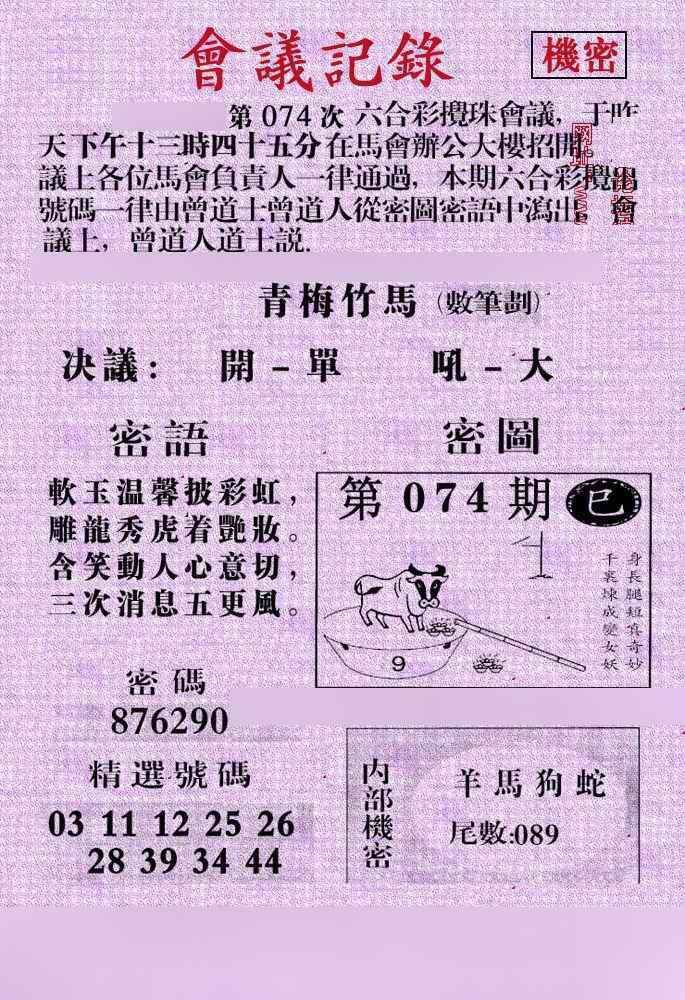 會議記錄
機密
第 074 次 六合彩攪珠會議，于昨
天下午十三時四十五分在馬會辦公大樓招開
議上各位馬會負責人一律通過，本期六合彩攪出
號碼一律由曾道士曾道人從密圖密語中瀉出，會
議上，曾道人道士説.
青梅竹馬（數筆劃）
决議： 開－單 吼－大
密語
軟玉温馨披彩虹，
雕龍秀虎着艷妝。
含笑動人心意切，
三次消息五更風。
密圖
第 074 期 巳
身長腿短真奇妙
千裏煉成變女妖
9
密碼
876290
精選號碼
03 11 12 25 26
28 39 34 44
内部機密
羊馬狗蛇
尾數:089